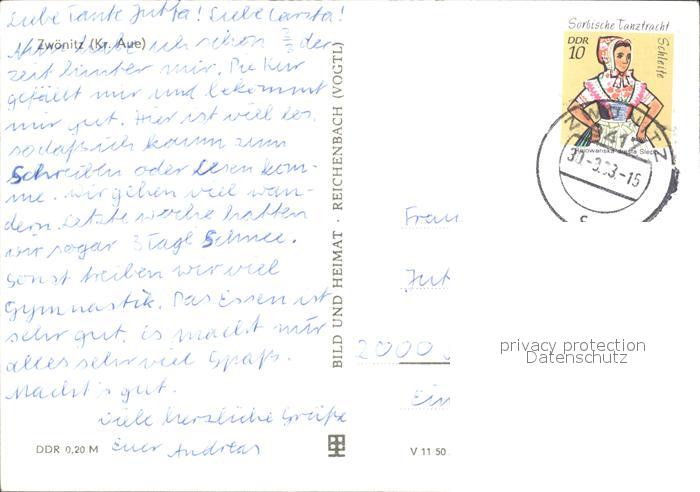 Liebe Tante Jutta! Liebe Carsta!
Zwönitz (Kr. Aue)
Nun habe ich schon 2/3 der
zeit hinter mir. Die Kur
gefällt mir und bekommt
mir gut. Hier ist viel los,
sodaßich kaum zum
Schreiben oder Lesen kom-
me. wir gehen viel wan-
dern. Letzte woche hatten
wir sogar 3 tage Schnee.
Sonst treiben wir viel
Gymnastik. Das Essen ist
sehr gut. es macht mir
alles sehr viel Spaß.
Macht's gut.
viele herzliche Grüße
Euer Andreas
DDR 0,20 M
BILD UND HEIMAT · REICHENBACH (VOGTL)
V 11 50
Sorbische Tanztracht
Schleife
DDR
10
ZWÖNITZ
9417
30.-3.83.-15
Frau
Jut
2000
Ein
privacy protection
Datenschutz